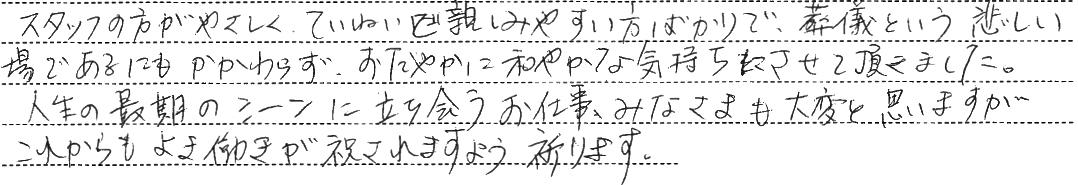 スタッフの方がやさしく、ていねいで親しみやすい方ばかりで、葬儀という悲しい
場であるにもかかわらず、おだやかに和やかな気持ちにさせて頂きました。
人生の最期のシーンに立ち会うお仕事、みなさまも大変と思いますが
これからもよき働きが祝されますよう祈ります。